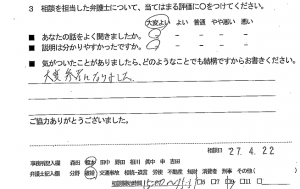 3 相談を担当した弁護士について、当てはまる評価に○をつけてください。
大変よい よい 普通 やや悪い 悪い
■ あなたの話をよく聞きましたか。
■ 説明は分かりやすかったですか。
■ 気がついたことがありましたら、どのようなことでも結構ですからお書きください。
大変参考になりました
ご協力ありがとうございました。
27.4.22
事務所記入欄
弁護士記入欄 分野 離婚 交通事故 相続・遺言 労災 不動産 知財 消費者 刑事 その他(